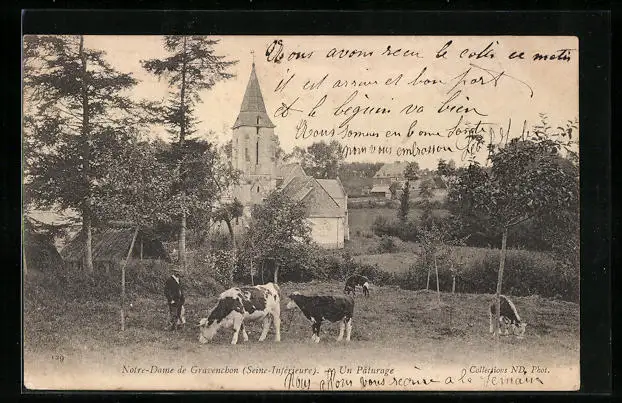 Nous avons reçu le colis ce matin
il est arrivé et bon port
et le béguin va bien
Nous sommes en bonne santé
nous vous embrassons
129
Notre-Dame de Gravenchon (Seine-Inférieure). — Un Pâturage
Collections ND. Phot.
Nous vous a la semaine